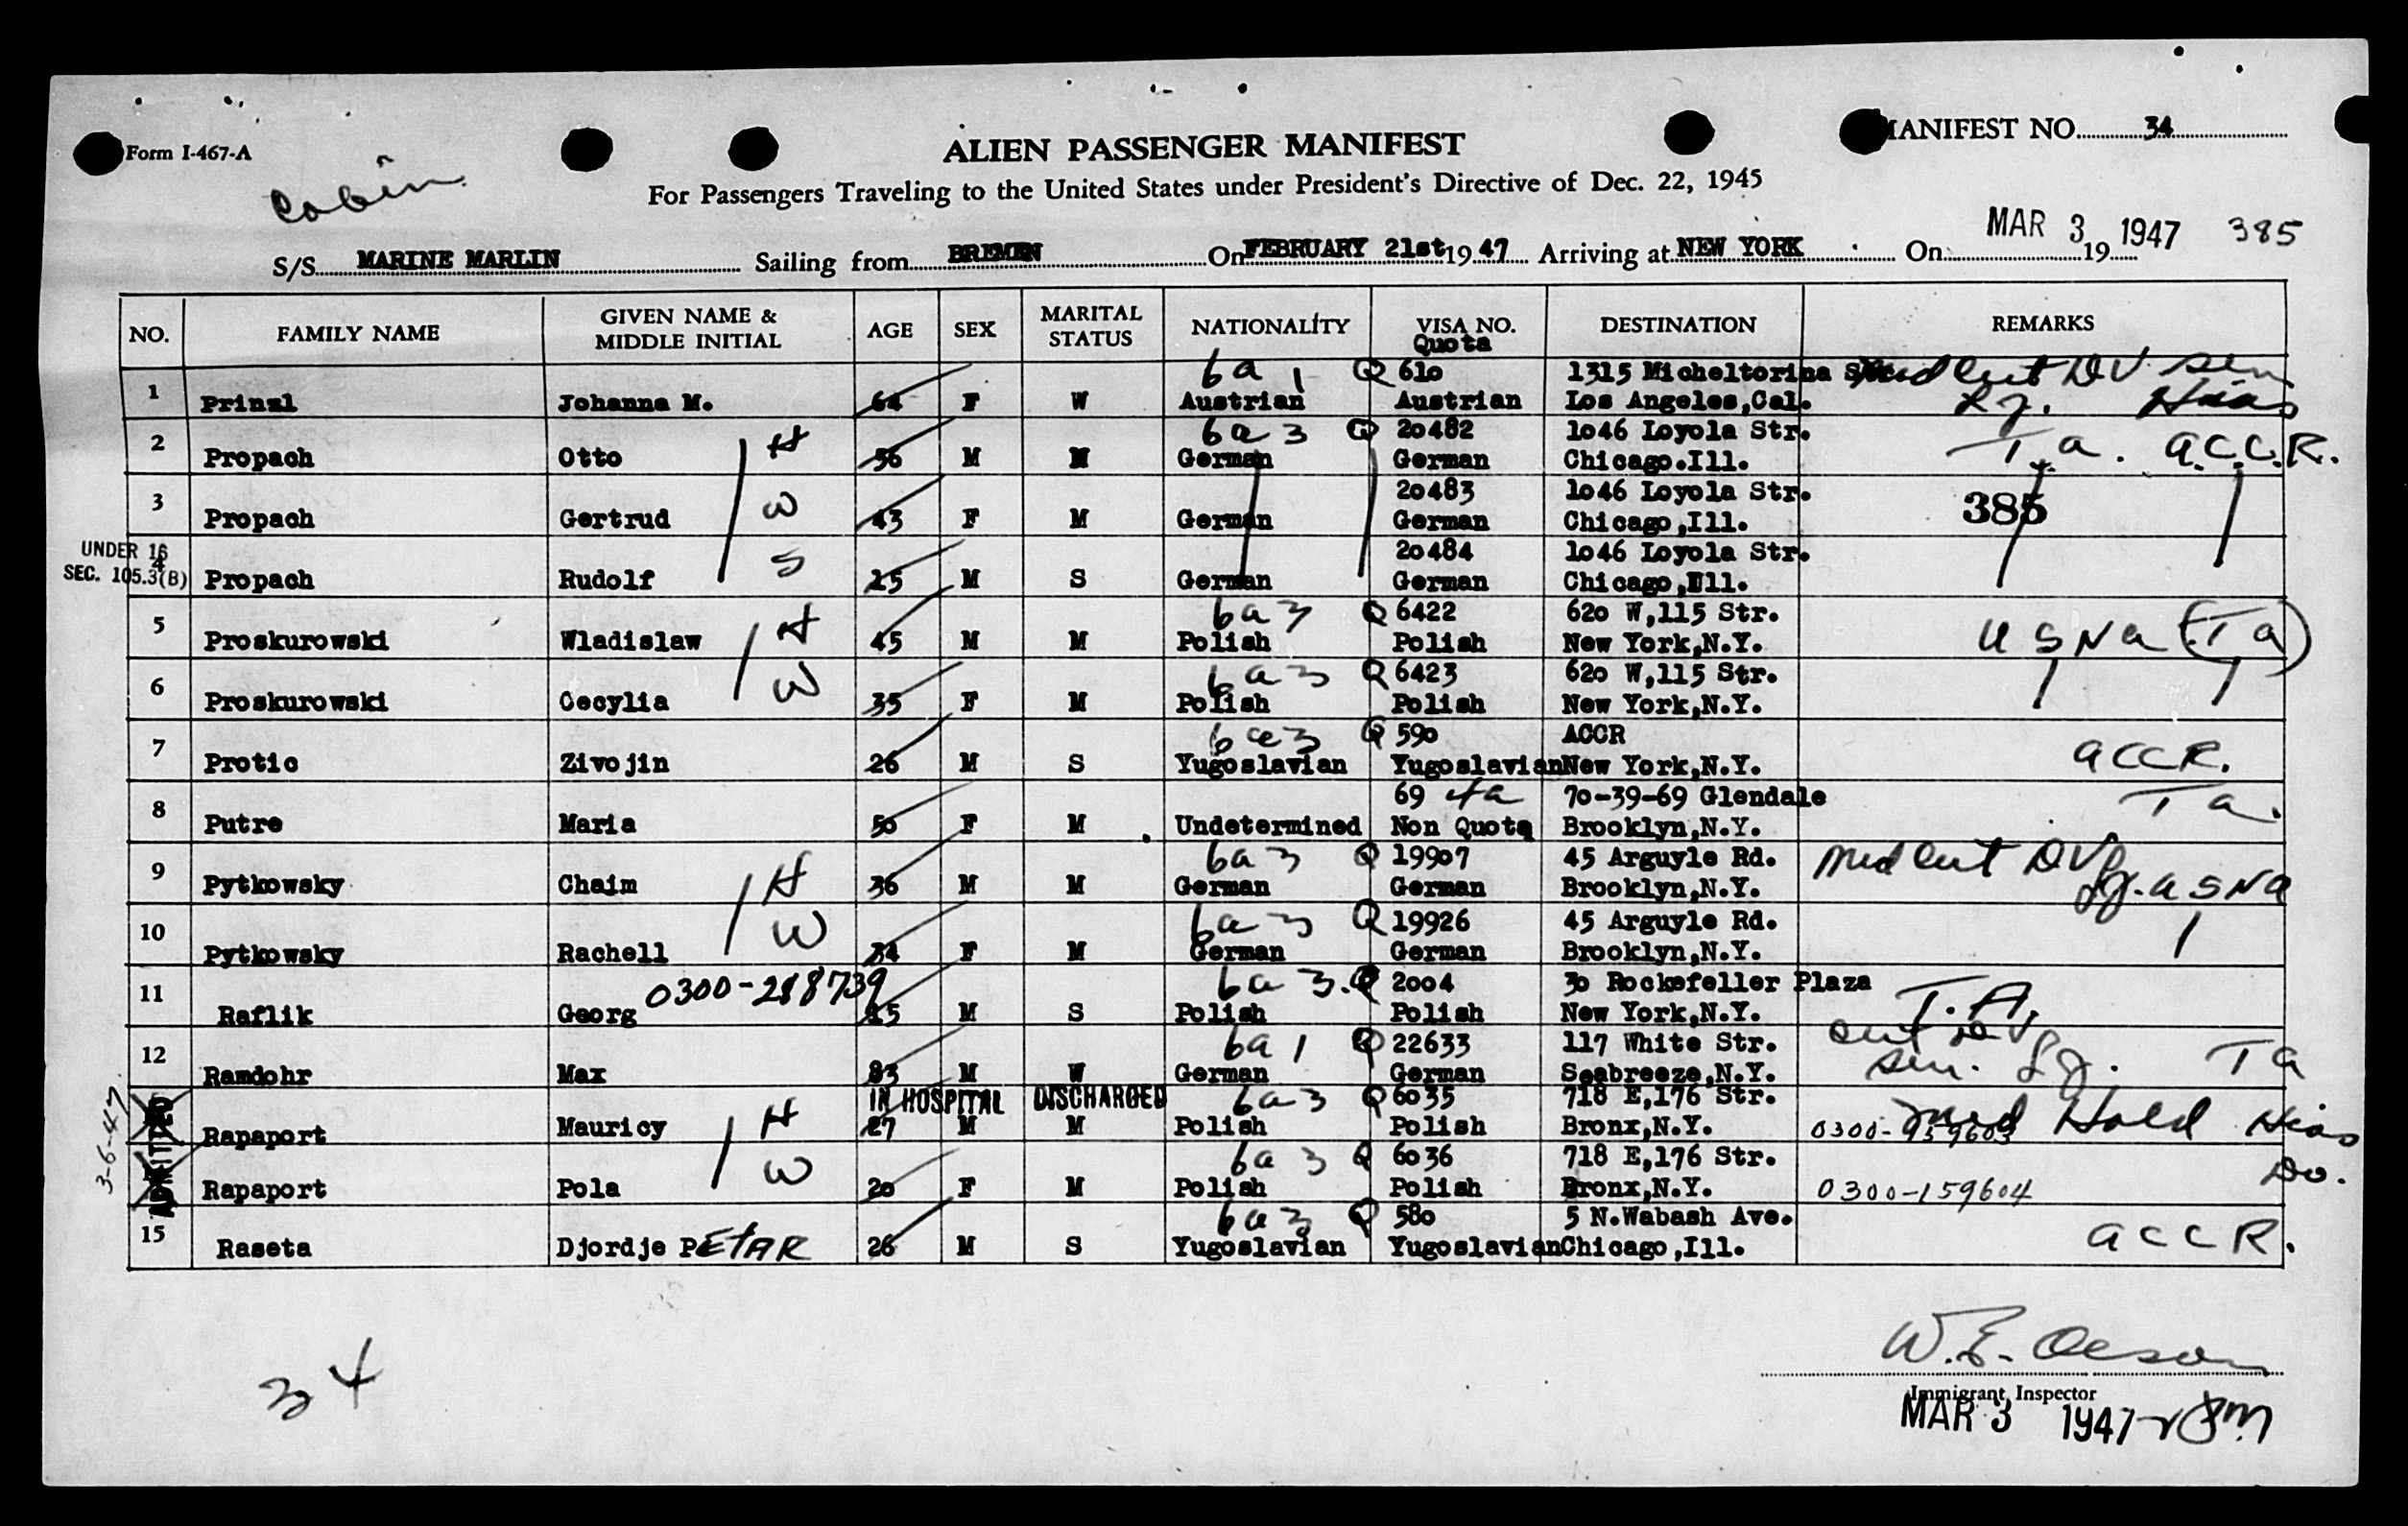 Form I-467-A
Cabin
ALIEN PASSENGER MANIFEST
MANIFEST NO. 34
For Passengers Traveling to the United States under President's Directive of Dec. 22, 1945
S/S MARINE MARLIN Sailing from BREMEN On FEBRUARY 21st 19 47 Arriving at NEW YORK On MAR 3 19 1947 385
NO. FAMILY NAME GIVEN NAME & MIDDLE INITIAL AGE SEX MARITAL STATUS NATIONALITY VISA NO. Quota DESTINATION REMARKS
6a 1 Q 610 1315 Micheltorina Med Cert DV sen
1 Prinzl Johanna M. 64 F W Austrian Austrian Los Angeles,Cal. Hias
6a 3 Q 20482 1046 Loyola Str.
2 Propach Otto H 56 M M German German Chicago.Ill. T.a. A.C.C.R.
20483 1046 Loyola Str.
3 Propach Gertrud W 43 F M German German Chicago,Ill. 385
UNDER 16 SEC. 105.3(B)
20484 1046 Loyola Str.
4 Propach Rudolf S 15 M S German German Chicago,Ill.
6a3 Q 6422 620 W,115 Str.
5 Proskurowski Wladislaw H 45 M M Polish Polish New York,N.Y. U S N a (T a)
6a3 Q 6423 620 W,115 Str.
6 Proskurowski Cecylia W 35 F M Polish Polish New York,N.Y.
6a3 Q 590 ACCR
7 Protic Zivojin 26 M S Yugoslavian Yugoslavian New York,N.Y. ACCR.
69 4a 70-39-69 Glendale T a.
8 Putre Maria 50 F M Undetermined Non Quota Brooklyn,N.Y.
6a3 Q 19907 45 Arguyle Rd. Med Cert DV
9 Pytkowsky Chaim H 36 M M German German Brooklyn,N.Y. USNA
6a3 Q 19926 45 Arguyle Rd.
10 Pytkowsky Rachell W 34 F M German German Brooklyn,N.Y.
0300-288739 6a 3. Q 2004 30 Rockefeller Plaza
11 Raflik Georg M S Polish Polish New York,N.Y. T.A.
6a 1 Q 22633 117 White Str.
12 Ramdohr Max 83 M W German German Seabreeze,N.Y. sen. T a
IN HOSPITAL DISCHARGED 6a3 Q 6035 718 E,176 Str.
Rapaport Mauricy H 27 M M Polish Polish Bronx,N.Y. 0300-159603 Med Hold Hias
ADMITTED 3-6-47
6a 3 Q 6036 718 E,176 Str. Do.
Rapaport Pola W 20 F M Polish Polish Bronx,N.Y. 0300-159604
6a3 Q 580 5 N.Wabash Ave.
15 Raseta Djordje PETAR 26 M S Yugoslavian Yugoslavian Chicago,Ill. ACCR.
34
W.E. Oeson
Immigrant Inspector
MAR 3 1947